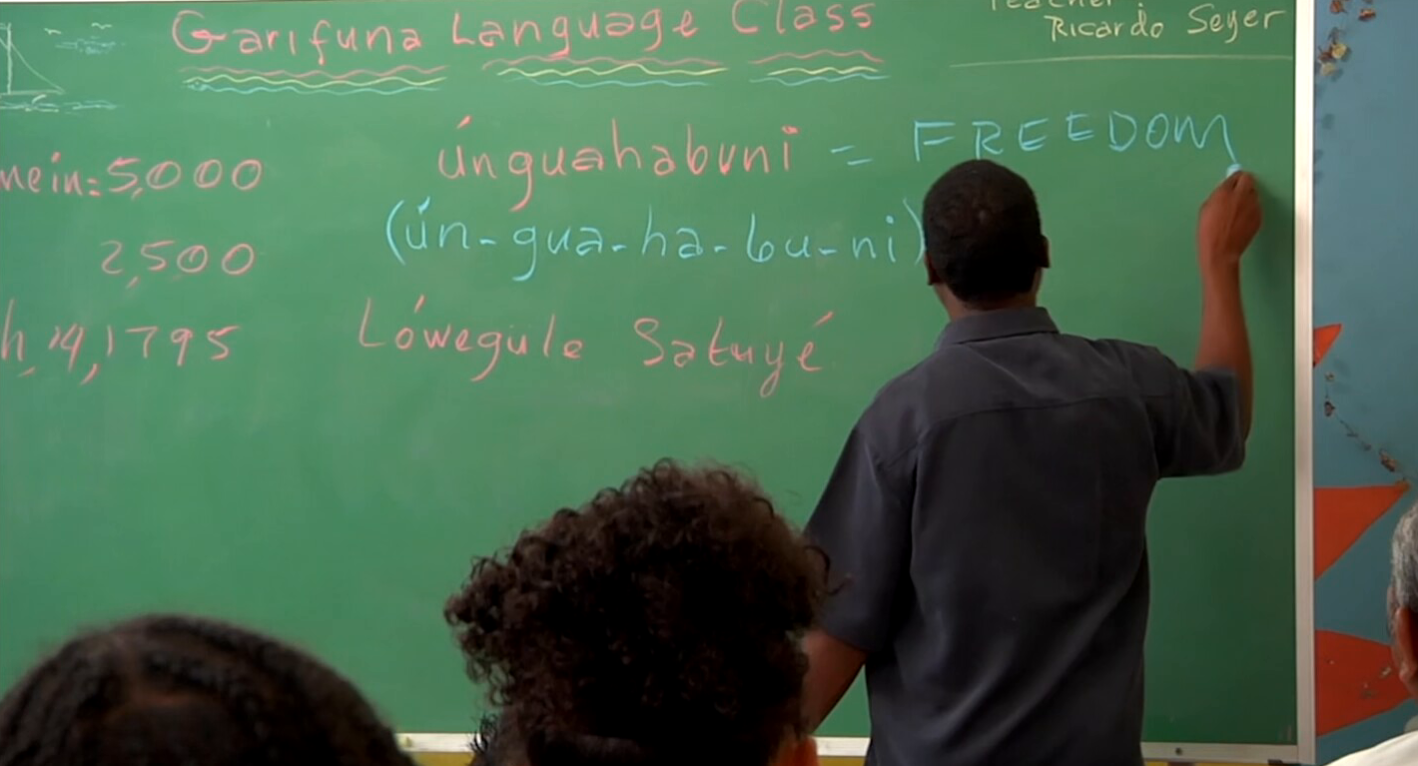 Garifuna Language Class
Teacher:
Ricardo Seyer
únguahabuni = FREEDOM
(ún-gua-ha-bu-ni)
5,000
2,500
14, 1795
Lówegule Satuyé